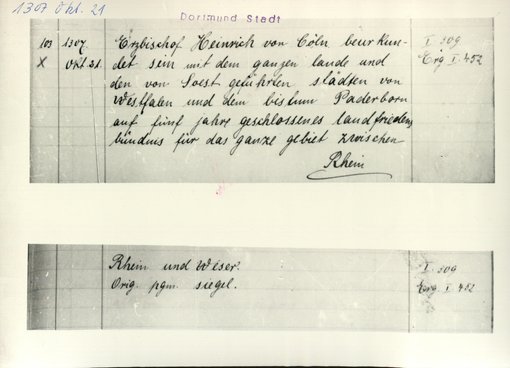 1307 Okt. 21
Dortmund Stadt
103 1307. Erzbischof Heinrich von Cöln beurkun- I 309
X Okt. 21. det sein mit dem ganzen lande und Erg. I. 452
den von Soest geführten städten von
Westfalen und dem bistum Paderborn
auf fünf jahre geschlossenes landfriedens
bündnis für das ganze gebiet zwischen
Rhein
Rhein und Weser. I. 309
Orig. pgm. siegel. Erg. I. 452